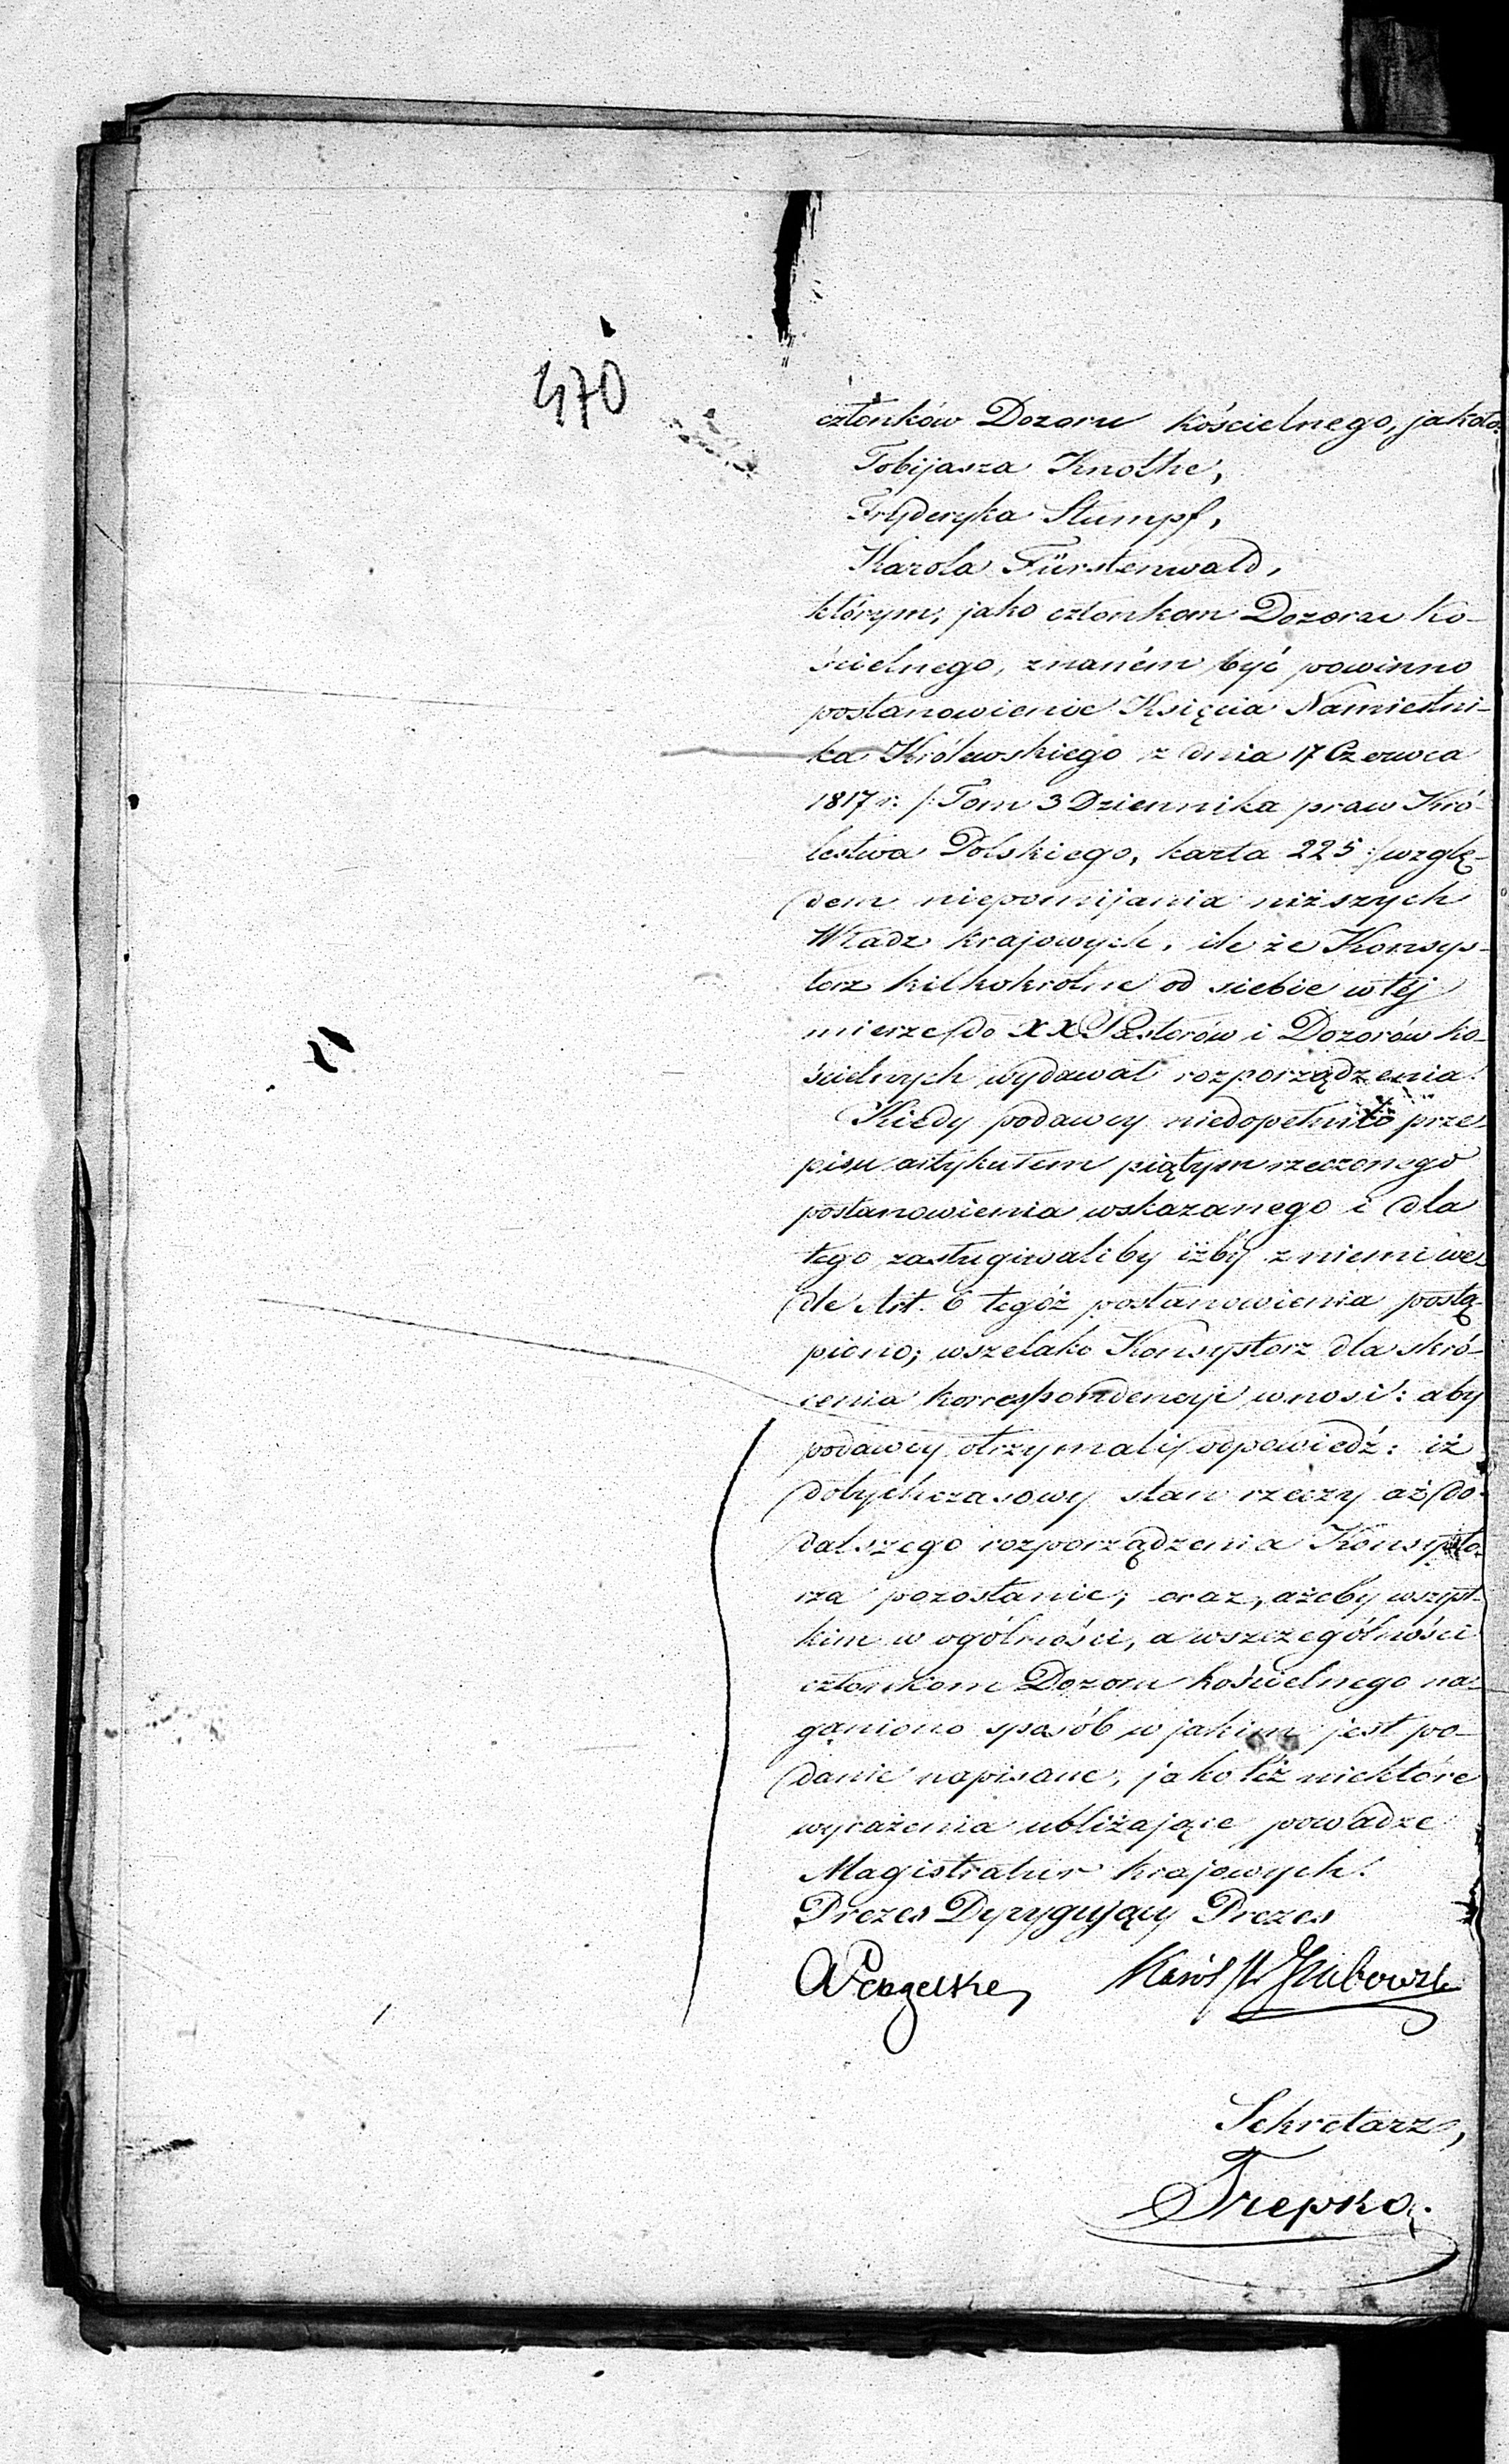 470
członków Dozoru kościelnego, jakoto
Tobijasza Knothe,
Fryderyka Stumpf,
Karola Fürstenwald,
którym, jako członkom Dozoru Ko-
ścielnego, znaném być powinno
postanowienie Księcia Namiestni-
ka Królewskiego z dnia 17 Czerwca
1817 r. /: Tom 3 Dziennika praw Kró-
lestwa Polskiego, karta 225 :/ wzglę-
dem niepomijania niższych
Władz krajowych, ile że Konsys-
torz kilkokrotne od siebie w téj
mierze do XX Pastorów i Dozorów ko-
ścielnych wydawał rozporządzenia.
Kiedy podawcy niedopełnili prze-
pisu artykułem piątym rzeczonego
postanowienia wskazanego i dla
tego zasługiwaliby iżby z niemi we-
dle Art. 6 tegóż postanowienia postą-
piono; wszelako Konsystorz dla skró-
cenia korrespondencyi wnosi: aby
podawcy otrzymali odpowiedź: iż
dotychczasowy stan rzeczy aż do
dalszego rozporządzenia Konsysto-
rza pozostanie; oraz, ażeby wszyst-
kim w ogólności, a wszczególności
członkom Dozoru kościelnego na-
ganiono sposób w jakim jest po-
danie napisane, jako też niektóre
wyrażenia ubliżające powadze
Magistratur krajowych.
Prezes Dyrygujący Prezes
Sekretarz,
Trepka.